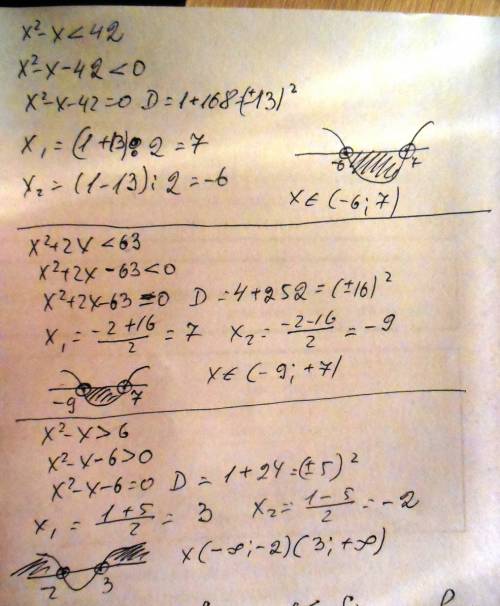 x²-x<42
x²-x-42<0
x²-x-42=0 D=1+168=(±13)²
x₁=(1+13):2=7
x₂=(1-13):2=-6
-6 7
x∈(-6;7)
x²+2x<63
x²+2x-63<0
x²+2x-63=0 D=4+252=(±16)²
x₁=\frac{-2+16}{2}=7 x₂=\frac{-2-16}{2}=-9
-9 7
x∈(-9;+7)
x²-x>6
x²-x-6>0
x²-x-6=0 D=1+24=(±5)²
x₁=\frac{1+5}{2}=3 x₂=\frac{1-5}{2}=-2
2 3
x(-∞;-2)(3;+∞)